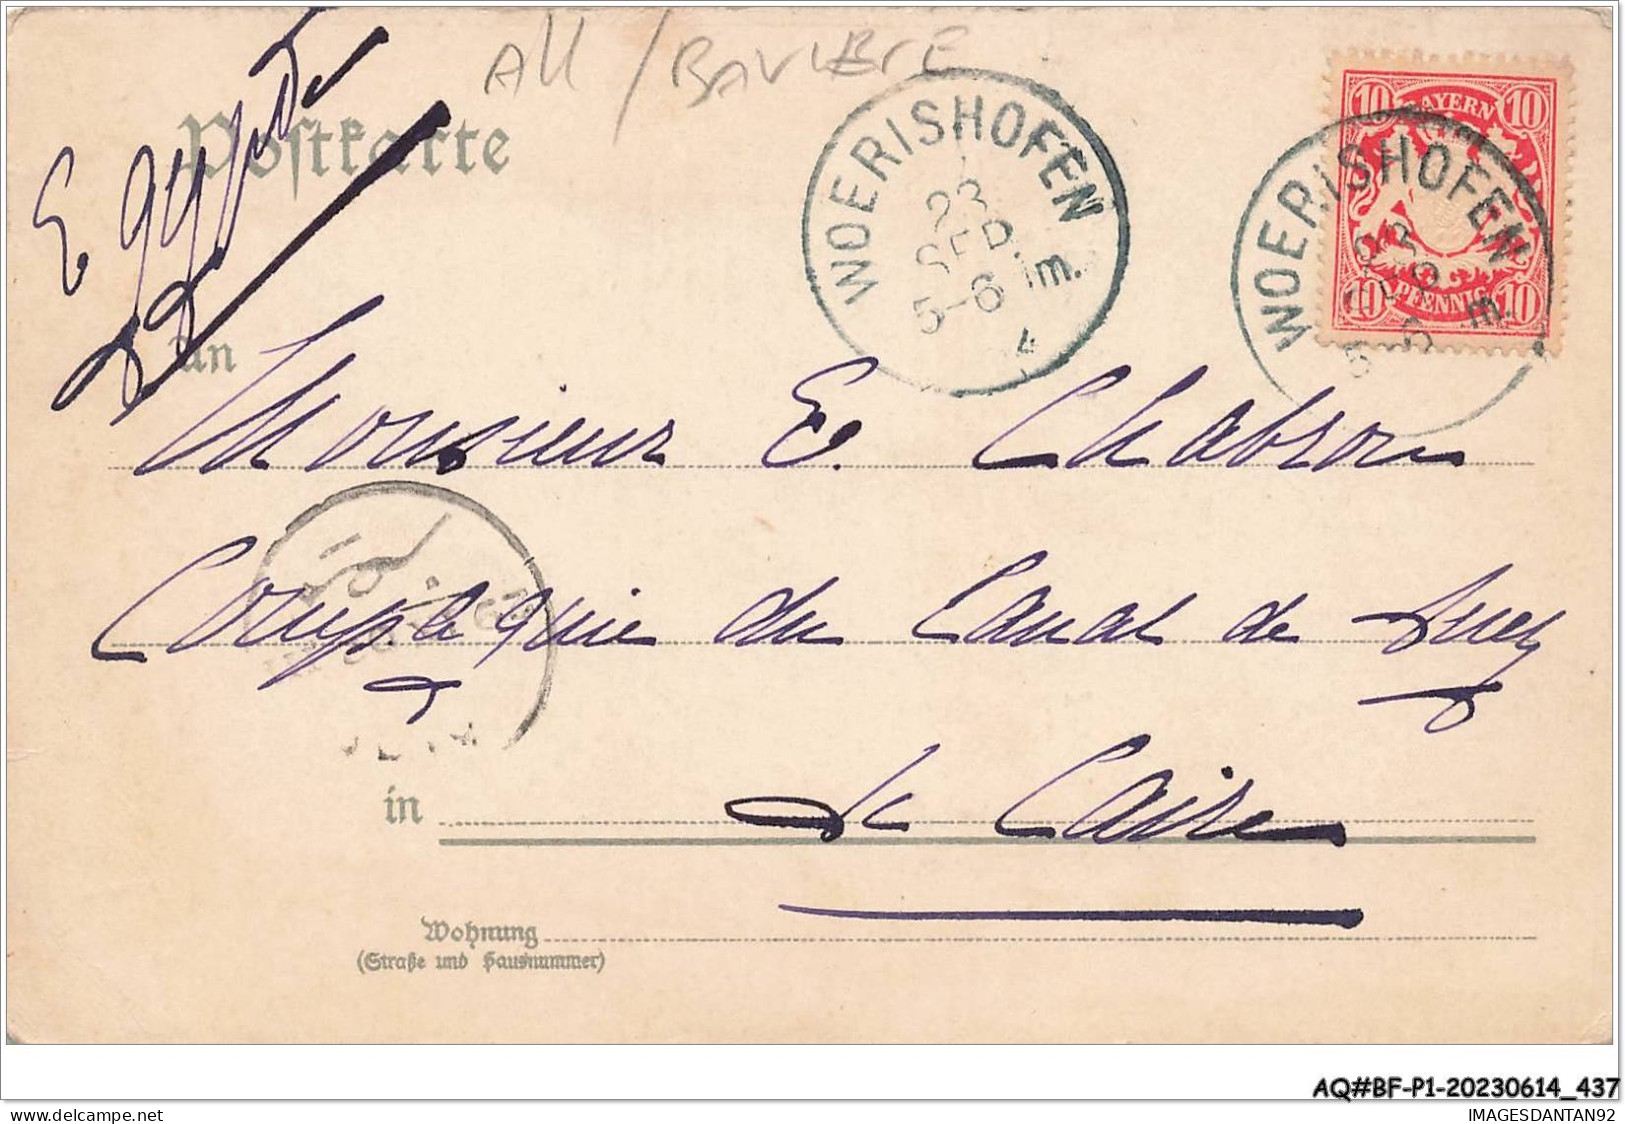 All / BAVIERE
Egypte
Postkarte
WOERISHOFEN
23
SEP.
5-6 Nm.
04
BAYERN
10 10
PFENNIG
10 10
WOERISHOFEN
an
Monsieur E. Chabrou
Compagnie du Canal de Suez
in
Le Caire
Wohnung
(Straße und Hausnummer)
AQ#BF-P1-20230614_437
IMAGESDANTAN92